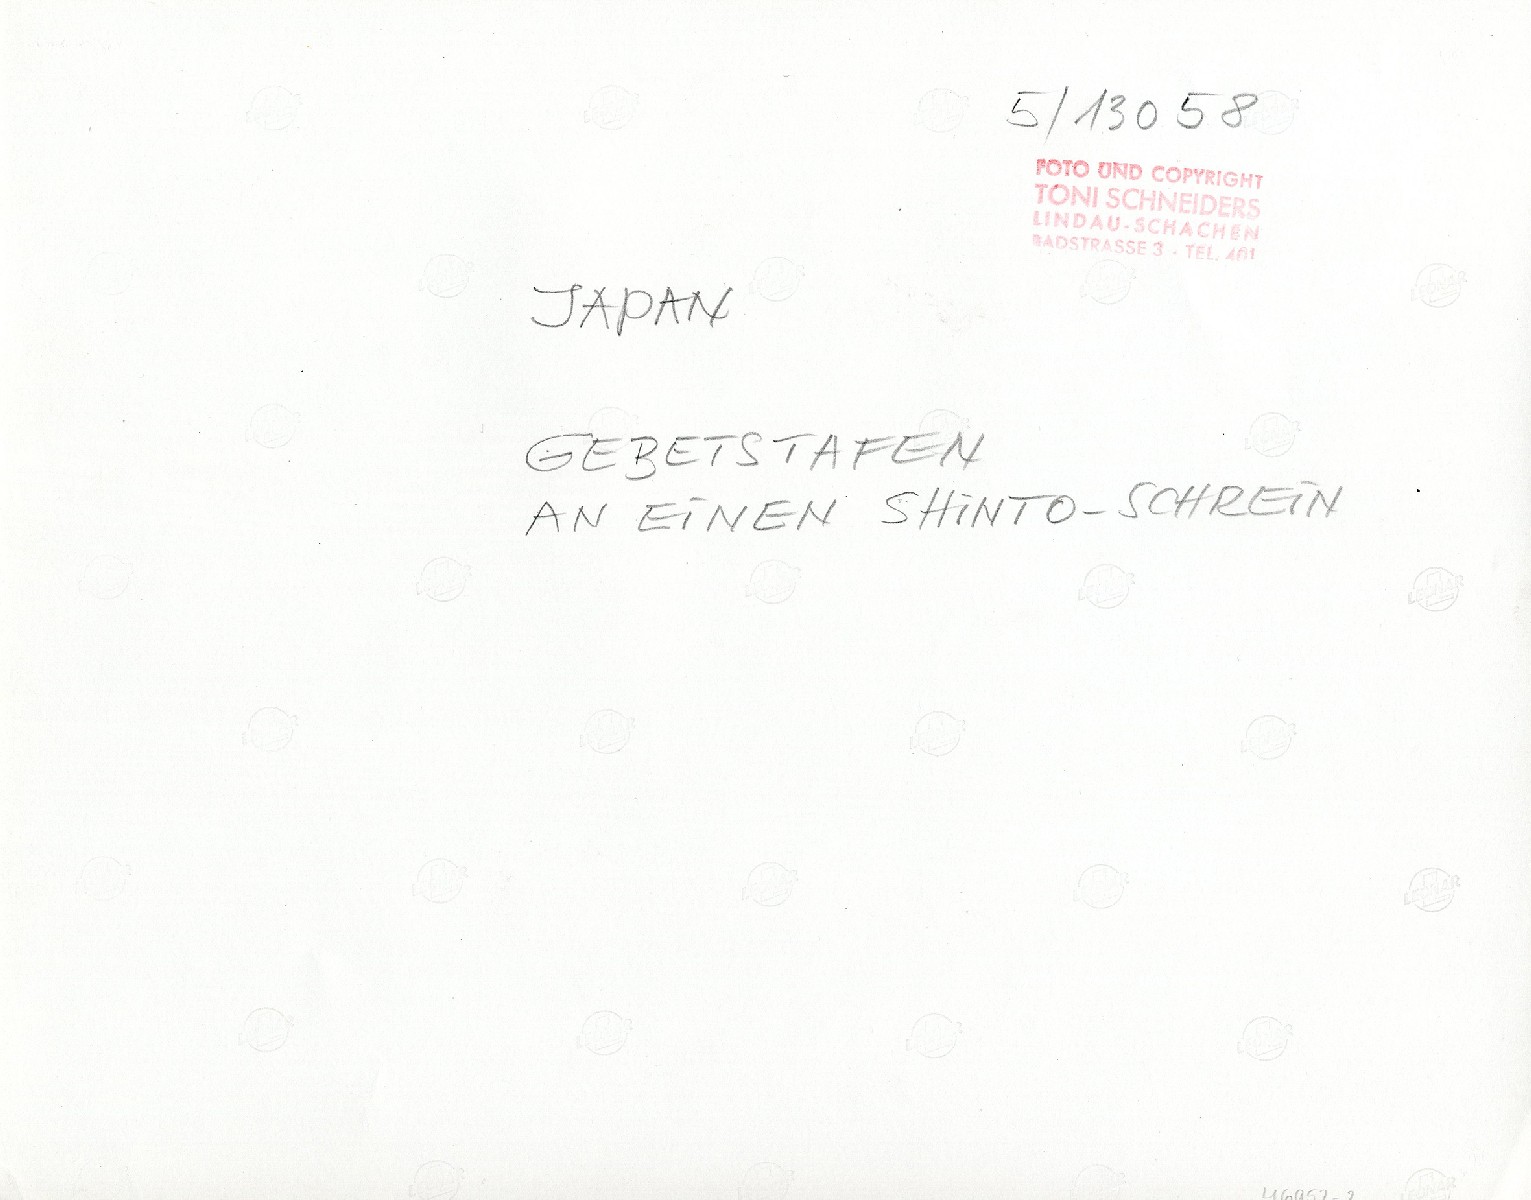 5/13058
FOTO UND COPYRIGHT
TONI SCHNEIDERS
LINDAU-SCHACHEN
BADSTRASSE 3 - TEL.
JAPAN
GEBETSTAFEN
AN EINEN SHINTO-SCHREIN